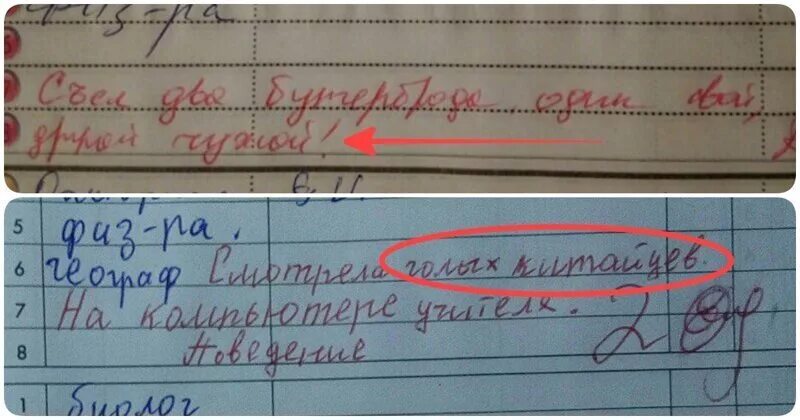 физ-ра
Съел два бутерброда, один свой,
другой чужой!
5 физ-ра.
6 географ Смотрела голых китайцев.
7 На компьютере учителя. 2
8 Поведение
1 биолог